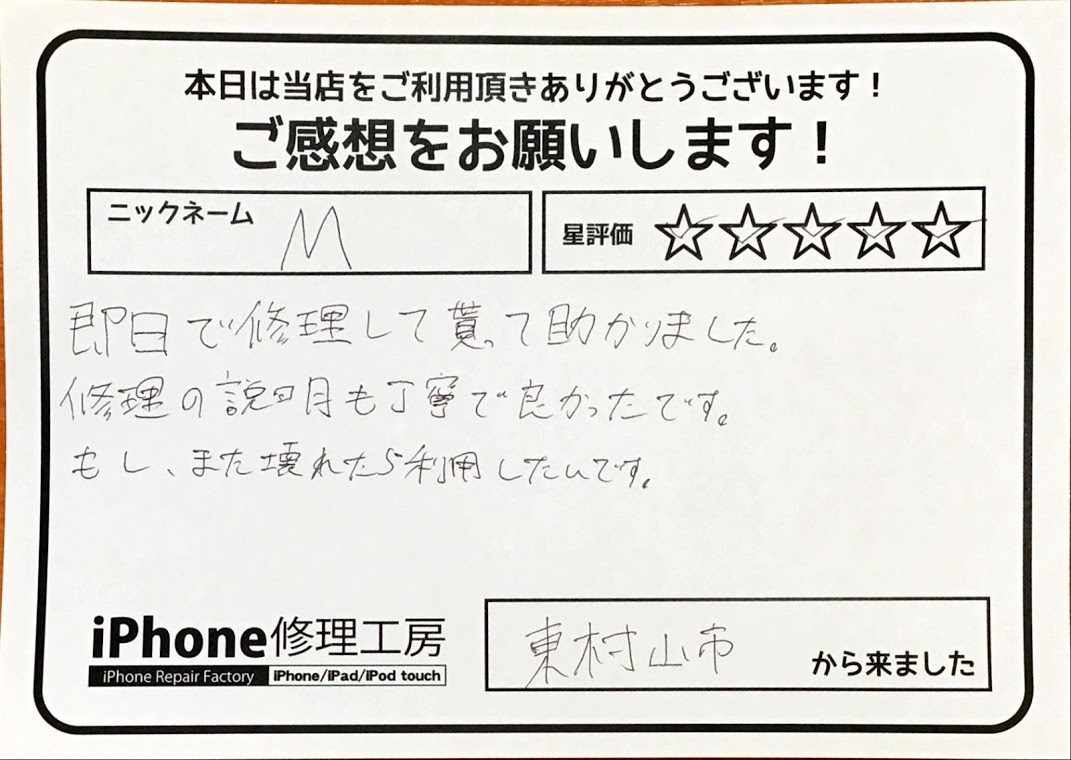 本日は当店をご利用頂きありがとうございます！
ご感想をお願いします！
ニックネーム M
星評価 ☆☆☆☆☆
即日で修理して貰って助かりました。
修理の説明も丁寧で良かったです。
もし、また壊れたら利用したいです。
iPhone修理工房
iPhone Repair Factory iPhone/iPad/iPod touch
東村山市 から来ました